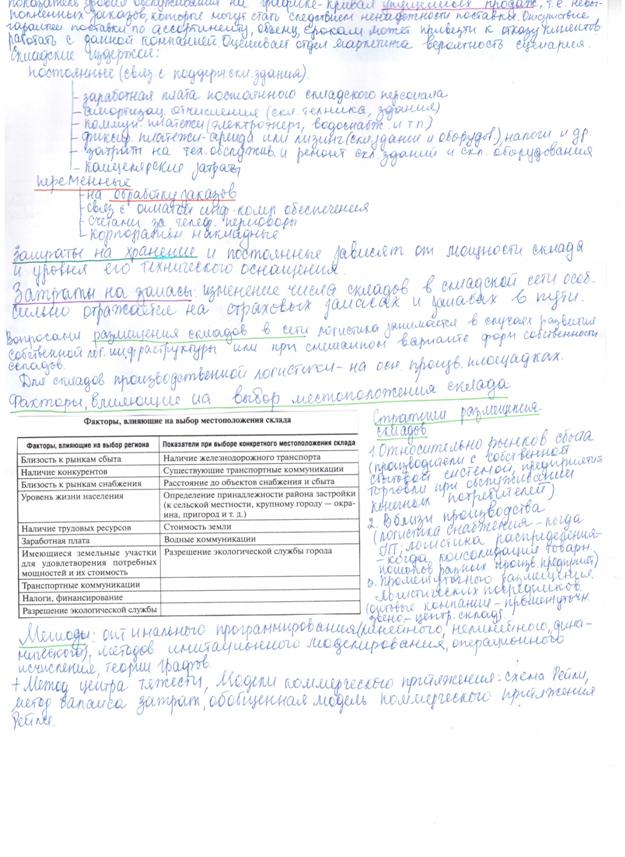 показатель уровня обслуживания на графике – кривая упущенных продаж, т.е. невы-
полненных заказов, которые могут стать следствием ненадежности поставки. Отсутствие
гарантии поставки по ассортименту, объему, срокам может привести к отказу клиентов
работать с данной компанией. Оценивает отдел маркетинга вероятность сценария.
Складские издержки:
постоянные (связ. с поддержкой здания).
– заработная плата постоянного складского персонала
– амортизац. отчисления (скл. техника, здания)
– коммун. платежи (электроэнерг, водоснабж. и т.п)
– фиксир. платежи – аренда или лизинг (скл. здании и оборудов.), налоги и др.
– затраты на тех. обслужив. и ремонт скл. зданий и скл. оборудования
– канцелярские затраты
переменные
– на обработку заказов
– связ. с оплатой инф. – комп. обеспечения
– счетами за телеф. переговоры
– корпоратив. накладные
Затраты на хранение и постоянные зависят от мощности склада
и уровня его технического оснащения.
Затраты на запасы: изменение числа складов в складской сети особ.
сильно отражается на страховых запасах и запасах в пути.
Вопросами размещения складов в сети логистика занимается в случаях развития
собственной лог. инфраструктуры или при смешанном варианте форм собственности
складов.
Для складов производственной логистики – на осн. произв. площадках.
Факторы, влияющие на выбор местоположения склада
Факторы, влияющие на выбор местоположения склада
Факторы, влияющие на выбор региона Показатели при выборе конкретного местоположения склада
Близость к рынкам сбыта Наличие железнодорожного транспорта
Наличие конкурентов Существующие транспортные коммуникации
Близость к рынкам снабжения Расстояние до объектов снабжения и сбыта
Уровень жизни населения Определение принадлежности района застройки
(к сельской местности, крупному городу — окра-
ина, пригород и т. д.)
Наличие трудовых ресурсов Стоимость земли
Заработная плата Водные коммуникации
Имеющиеся земельные участки Разрешение экологической службы города
для удовлетворения потребных
мощностей и их стоимость
Транспортные коммуникации
Налоги, финансирование
Разрешение экологической службы
Стратегии размещения
складов
1. Относительно рынков сбыта
(производители с собственной
сбытовой системой, предприятия
торговли при обслуживании
конечных потребителей)
2. Вблизи производства
(логистика снабжения – когда
ГП, логистика распределения –
– когда консолидация товарн.
потоков разных произв. предприят)
3. Промежуточного размещения
логистических посредников
(оптовые компании – промежуточн.
звено – центр. склад)
Методы: оптимального программирования (линейного, нелинейного, дина-
мического), методов имитационного моделирования, операционного
исчисления, теории графов
+ Метод центра тяжести, Модели коммерческого притяжения: схема Рейли,
метод баланса затрат, обобщенная модель коммерческого притяжения
Рейли.